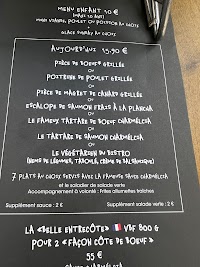 MENU ENFANT 10 €
VIANDE, POULET OU POISSON AU CHOIX
+
GLACE AU CHOIX
AUJOURD'HUI 15,90 €
PIÈCE DE BOEUF GRILLÉE
OU
POITRINE DE POULET GRILLÉE
OU
PIÈCE DE MAGRET DE CANARD GRILLÉE
OU
ESCALOPE DE SAUMON FRAIS À LA PLANCHA
OU
LE FAMEUX TARTARE DE BOEUF CHARMÉLCOA
OU
LE TARTARE DE SAUMON CHARMÉLCOA
OU
LE VÉGÉTARIEN DU BISTRO
(DÔME DE LÉGUMES, TABOULÉ, CRÈME DE BALSAMIQUE)
7 PLATS AU CHOIX SERVIS AVEC LA FAMEUSE SAUCE CHARMÉLCOA
et le saladier de salade verte
Accompagnement à volonté : Frites allumettes fraîches
Supplément sauce : 2 € Supplément salade verte : 2 €
LA «BELLE ENTRECÔTE» VBF 800 G
POUR 2 «FAÇON CÔTE DE BOEUF»
55 €